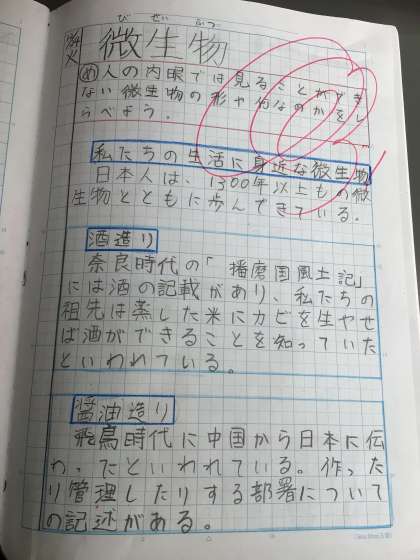 びせいぶつ
微生物
め人の肉眼では見ることができ
ない微生物の形や何なのかをし
らべよう。
私たちの生活に身近な微生物
日本人は、1300年以上もの微
生物とともに歩んできている。
酒造り
奈良時代の「播磨国風土記」
には酒の記載があり、私たちの
祖先は蒸した米にカビを生やせ
ば酒ができることを知っていた
といわれている。
醤油造り
飛鳥時代に中国から日本に伝
わったといわれている。作った
り管理したりする部署について
の記述がある。